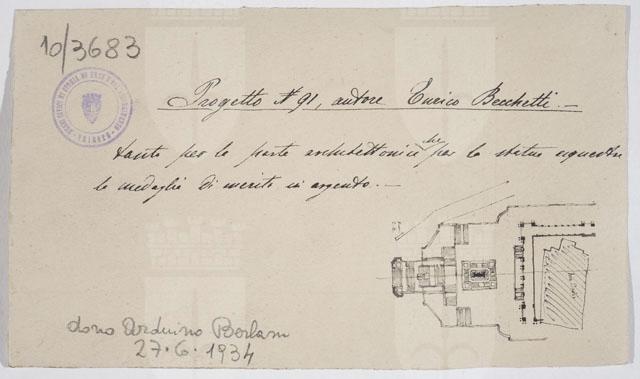 10/3683
Progetto N 91, autore Enrico Becchetti. —
tanto per la parte architettonica che per la statua equestre
la medaglia di merito in argento. —
dono Arduino Berlam
27.6.1934